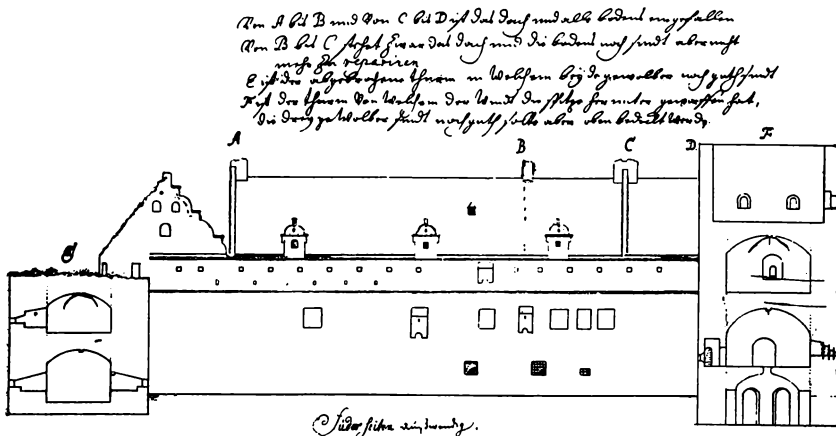 Von A bis B und Von C bis D ist das dach und alle bodens eingefallen
Von B bis C stehet zwar das dach und die bodens noch sindt aber nicht
mehr zu repariren
E ist der abgebrochene thurm in Welchem beyde gewolber noch guth sindt
F ist der thurm Von Welchem der Windt die spitze herunter geworffen hat,
die drey gewolber sindt noch guth solte aber oben bedeckt werd.
A B C D F
Süder seiten auswendig.